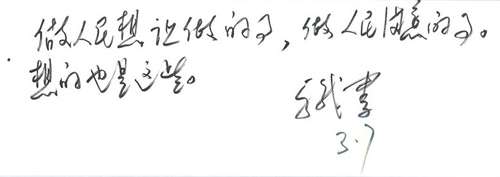 做人民想让做的事，做人民满意的事。
想的也是这些。
3.7